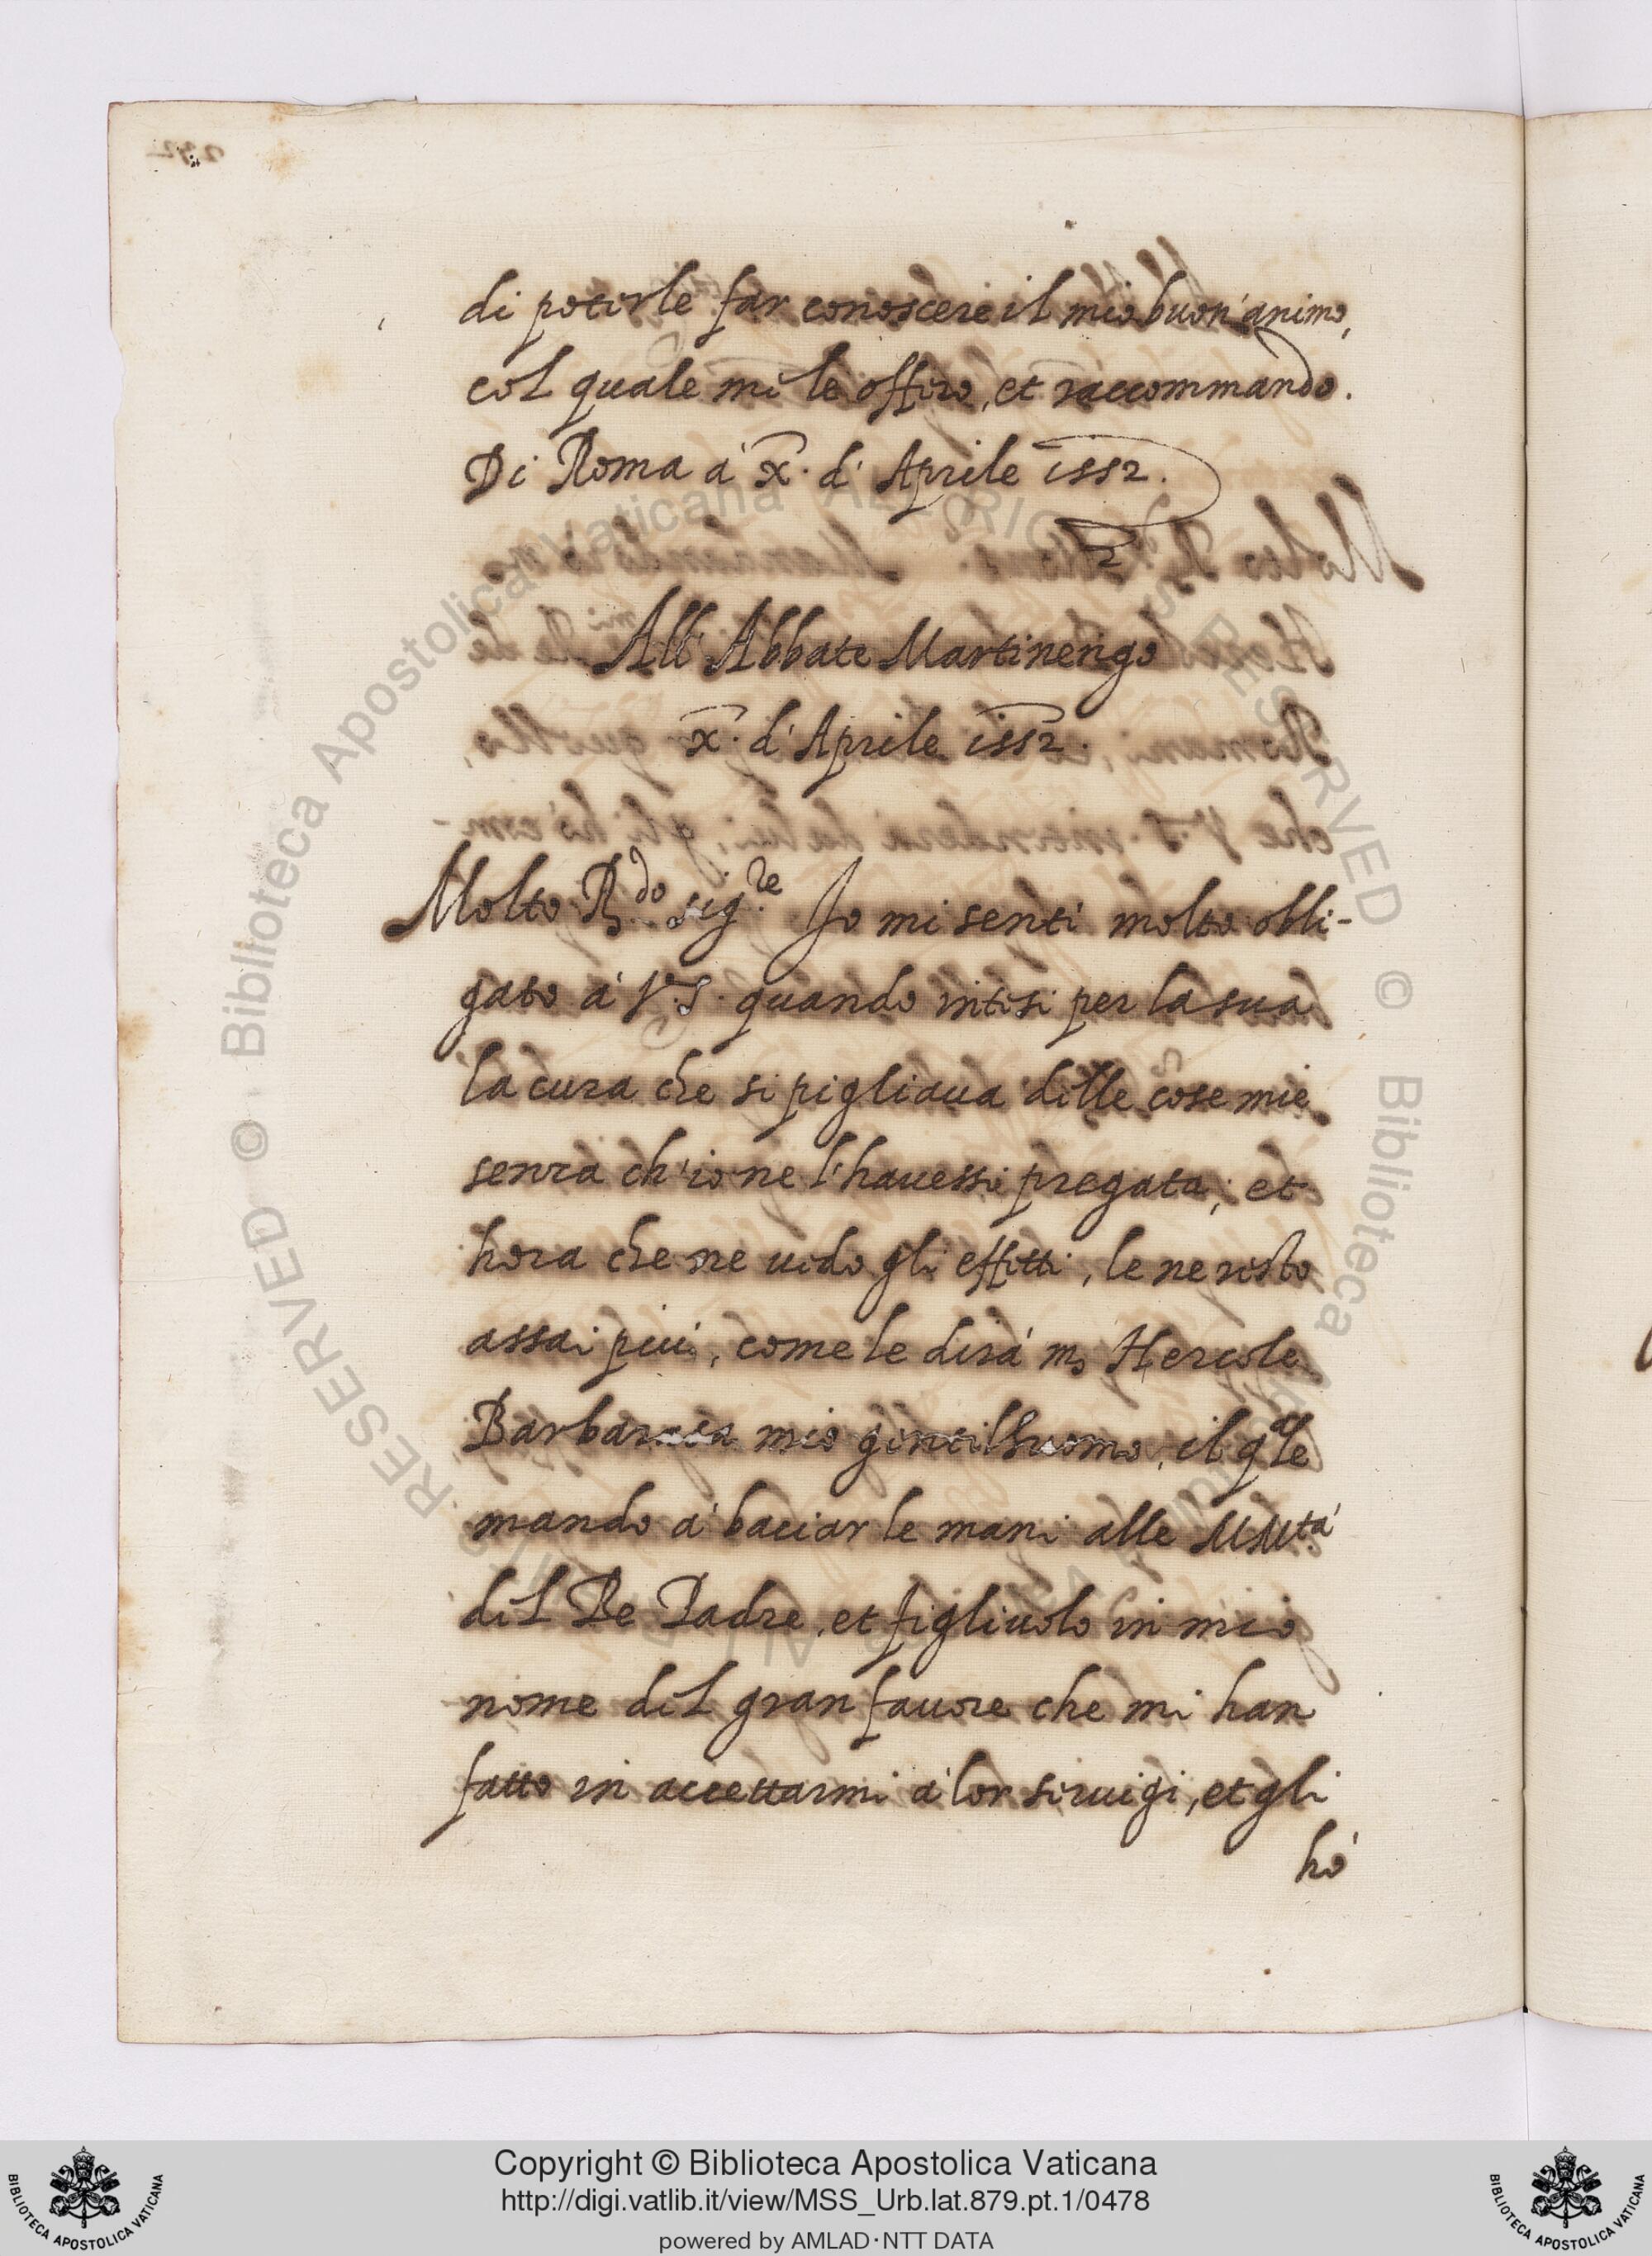 di poterle far conoscere il mio buon'animo,
col quale mi le offero, et raccommando.
Di Roma à x. d'Aprile 1552.
All'Abbate Martinengo
x. d'Aprile 1552.
Molto R.do sig.re Io mi senti molto obli-
gato à V.S. quando intesi per la sua
la cura che si pigliaua delle cose mie
senza ch'io ne l'hauessi pregata; et
hora che ne uedo gli effetti, le ne resto
assai più, come le dirà m. Hercole
Barbarasa mio gentilhuomo, il qle
mando à baciar le mani alle MM.tà
del Re Padre, et figliuolo in mio
nome del gran fauore che mi han
fatto in accettarmi à lor seruigi, et gli
hò
Copyright © Biblioteca Apostolica Vaticana
http://digi.vatlib.it/view/MSS_Urb.lat.879.pt.1/0478
powered by AMLAD·NTT DATA
BIBLIOTECA APOSTOLICA VATICANA
BIBLIOTECA APOSTOLICA VATICANA